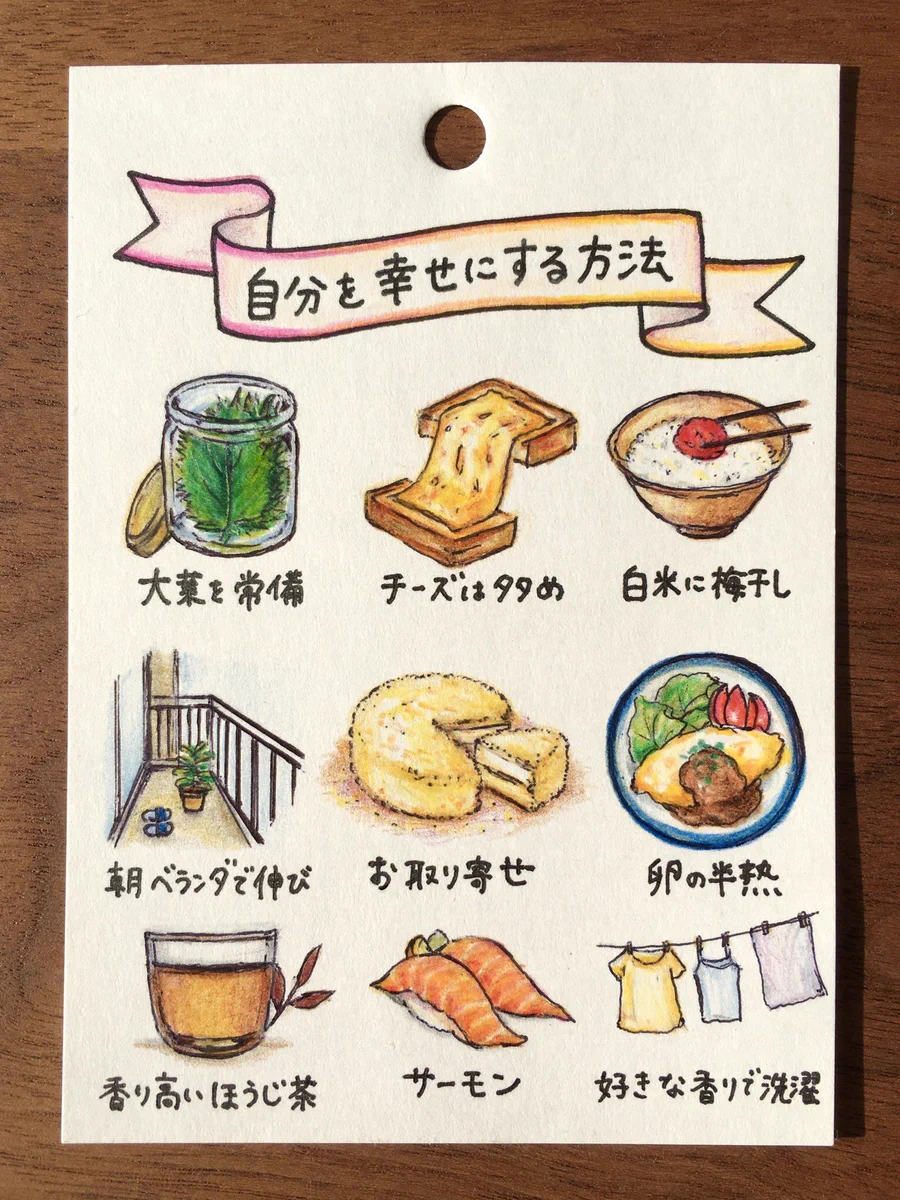 自分を幸せにする方法
大葉を常備
チーズは多め
白米に梅干し
朝ベランダで伸び
お取り寄せ
卵の半熟
香り高いほうじ茶
サーモン
好きな香りで洗濯